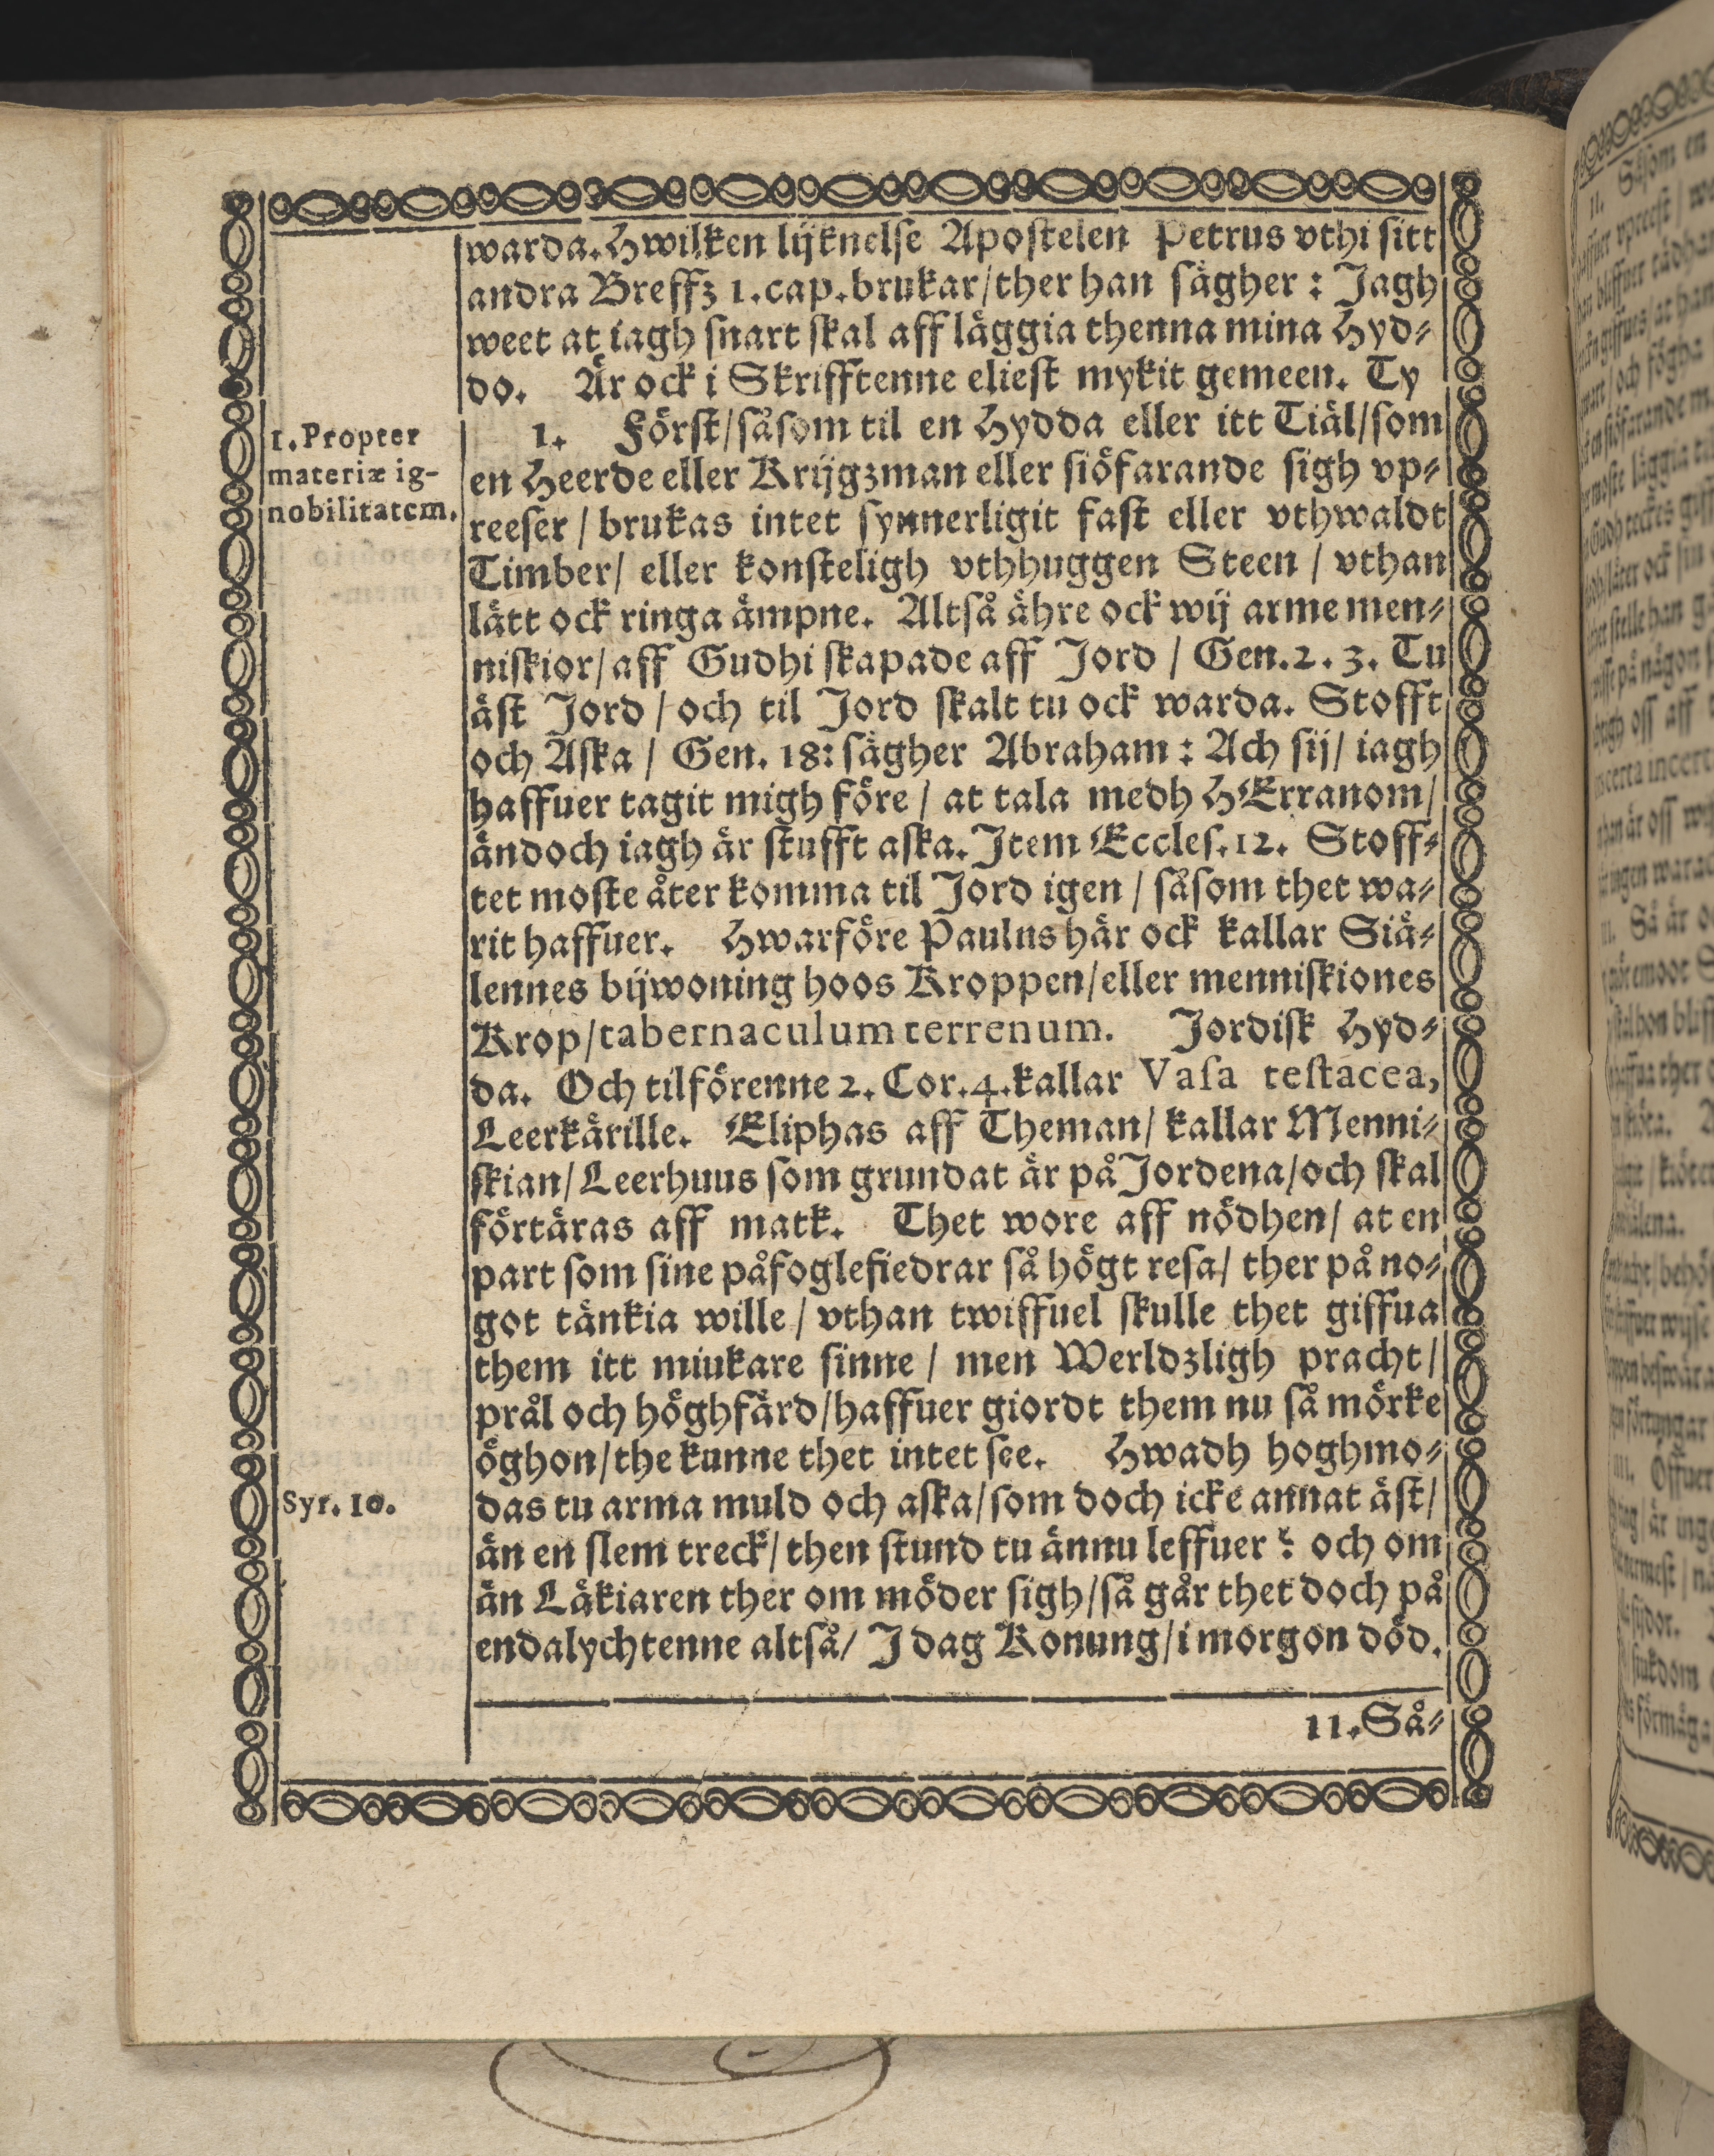 warda. Hwilken lijknelse Apostelen Petrus vthi sitt
andra Breffz 1. cap. brukar/ther han sägher: Jagh
weet at iagh snart skal aff läggia thenna mina Hyd⸗
do. Är ock i Skrifftenne eliest mykit gemeen. Ty
1. Propter
materiæ ig-
nobilitatem.
1. Först/såsom til en Hydda eller itt Tiäl/som
en Heerde eller Krijgzman eller siöfarande sigh vp⸗
reeser / brukas intet synnerligit fast eller vthwaldt
Timber/ eller konsteligh vthhuggen Steen / vthan
lätt ock ringa ämpne. Altså ähre ock wij arme men⸗
niskior/aff Gudhi skapade aff Jord / Gen. 2. 3. Tu
äst Jord / och til Jord skalt tu ock warda. Stofft
och Aska / Gen. 18: sägher Abraham: Ach sij/ iagh
haffuer tagit migh före / at tala medh HErranom/
ändoch iagh är stufft aska. Item Eccles. 12. Stoff⸗
tet moste åter komma til Jord igen / såsom thet wa⸗
rit haffuer. Hwarföre Paulus här ock kallar Siä⸗
lennes bijwoning hoos Kroppen/eller menniskiones
Krop/tabernaculum terrenum. Jordisk Hyd⸗
da. Och tilförenne 2. Cor. 4. kallar Vasa testacea,
Leerkärille. Eliphas aff Theman/ kallar Menni⸗
skian/ Leerhuus som grundat är på Jordena/och skal
förtäras aff matk. Thet wore aff nödhen/ at en
part som sine påfoglefiedrar så högt resa/ ther på no⸗
got tänkia wille / vthan twiffuel skulle thet giffua
them itt miukare sinne / men Werldzligh pracht/
prål och höghfärd/haffuer giordt them nu så mörke
öghon/the kunne thet intet see. Hwadh hoghmo⸗
Syr. 10.
das tu arma muld och aska/som doch icke annat äst/
än en slem treck/ then stund tu ännu leffuer? och om
än Läkiaren ther om möder sigh/så går thet doch på
endalychtenne altså/ I dag Konung/i morgon död.
11. Så⸗